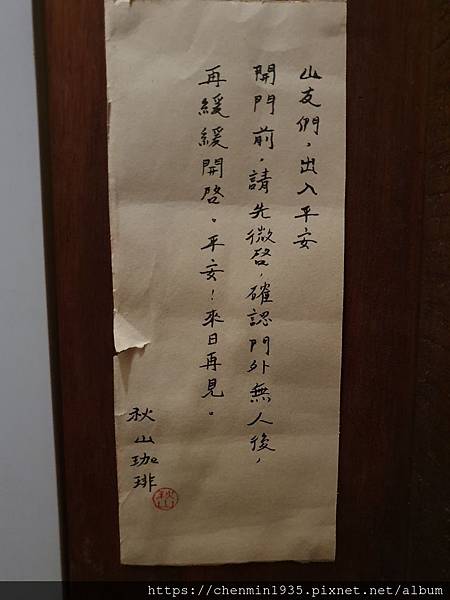 山友們，出入平安
開門前，請先微啓，確認門外無人後，
再緩緩開啓。平安！來日再見。
秋山珈琲
秋山
https://chenmin1935.pixnet.net/album